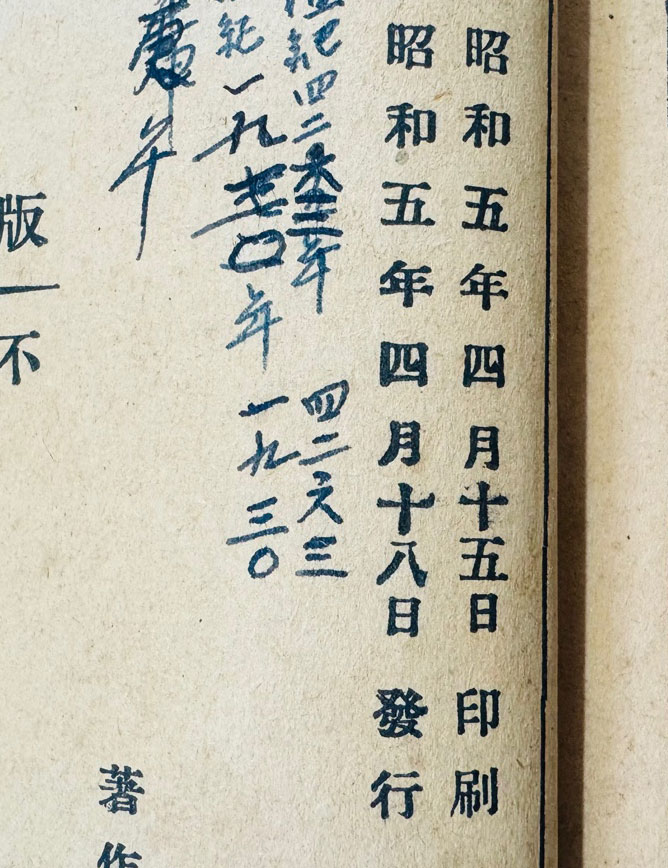 昭和五年四月十五日印刷
昭和五年四月十八日發行
紀四二六三年
四二六三
紀一九三〇年
一九三〇
午
著作
版
不